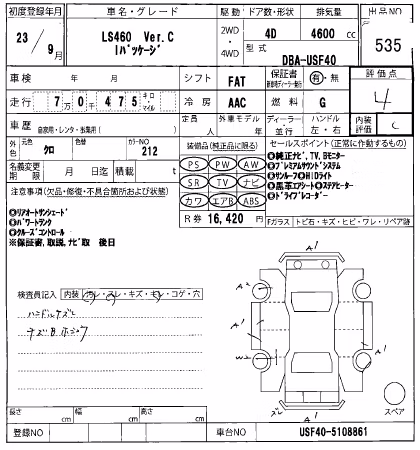 初度登録年月 車名・グレード 駆動 ドア数・形状 排気量 出品NO
23/9月 LS460 Ver.C Iパッケージ 2WD・4WD 4D 4600 cc 535
型式 DBA-USF40
車検 年 月 シフト FAT 保証書 有・無 評価点
走行 7万0千475 キロ・マイル 冷房 AAC 燃料 G 4
車歴 自家用・レンタ・事業用( ) 定員 人 外車モデル 年 ディーラー・並行 ハンドル 左・右 内装評価 C
外色 元色 クロ 色替 カラーNO 212 装備品(純正品に限る) セールスポイント(正常に作動するもの)
名義変更期限 月 日迄 積載 t PS PW AW
SR TV ナビ
カワ エアB ABS
●純正ナビ、TV、Bモニター
●プレミアムサウンドシステム
●サンルーフ●HIDライト
●黒革エアシート●ステアヒーター
●ドライブレコーダー
注意事項(欠品・修復・不具合箇所および状態)
●リアオートサンシェード
●パワートランク
●クルーズコントロール
※保証書、取説、ナビ取 後日
R券 16,420 円
Fガラス トビ石・キズ・ヒビ・ワレ・リペア跡
検査員記入 内装 ヨゴレ・スレ・キズ・キレ・コゲ・穴
ハンドルスレ
A1
A2
A1
W2
A1
スペア
長さ cm 幅 cm 高さ cm
登録NO 車台NO USF40-5108861